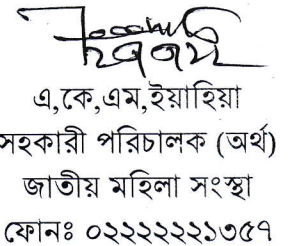 এ,কে,এম,ইয়াহিয়া
সহকারী পরিচালক (অর্থ)
জাতীয় মহিলা সংস্থা
ফোনঃ ০২২২২২২১৩৫৭